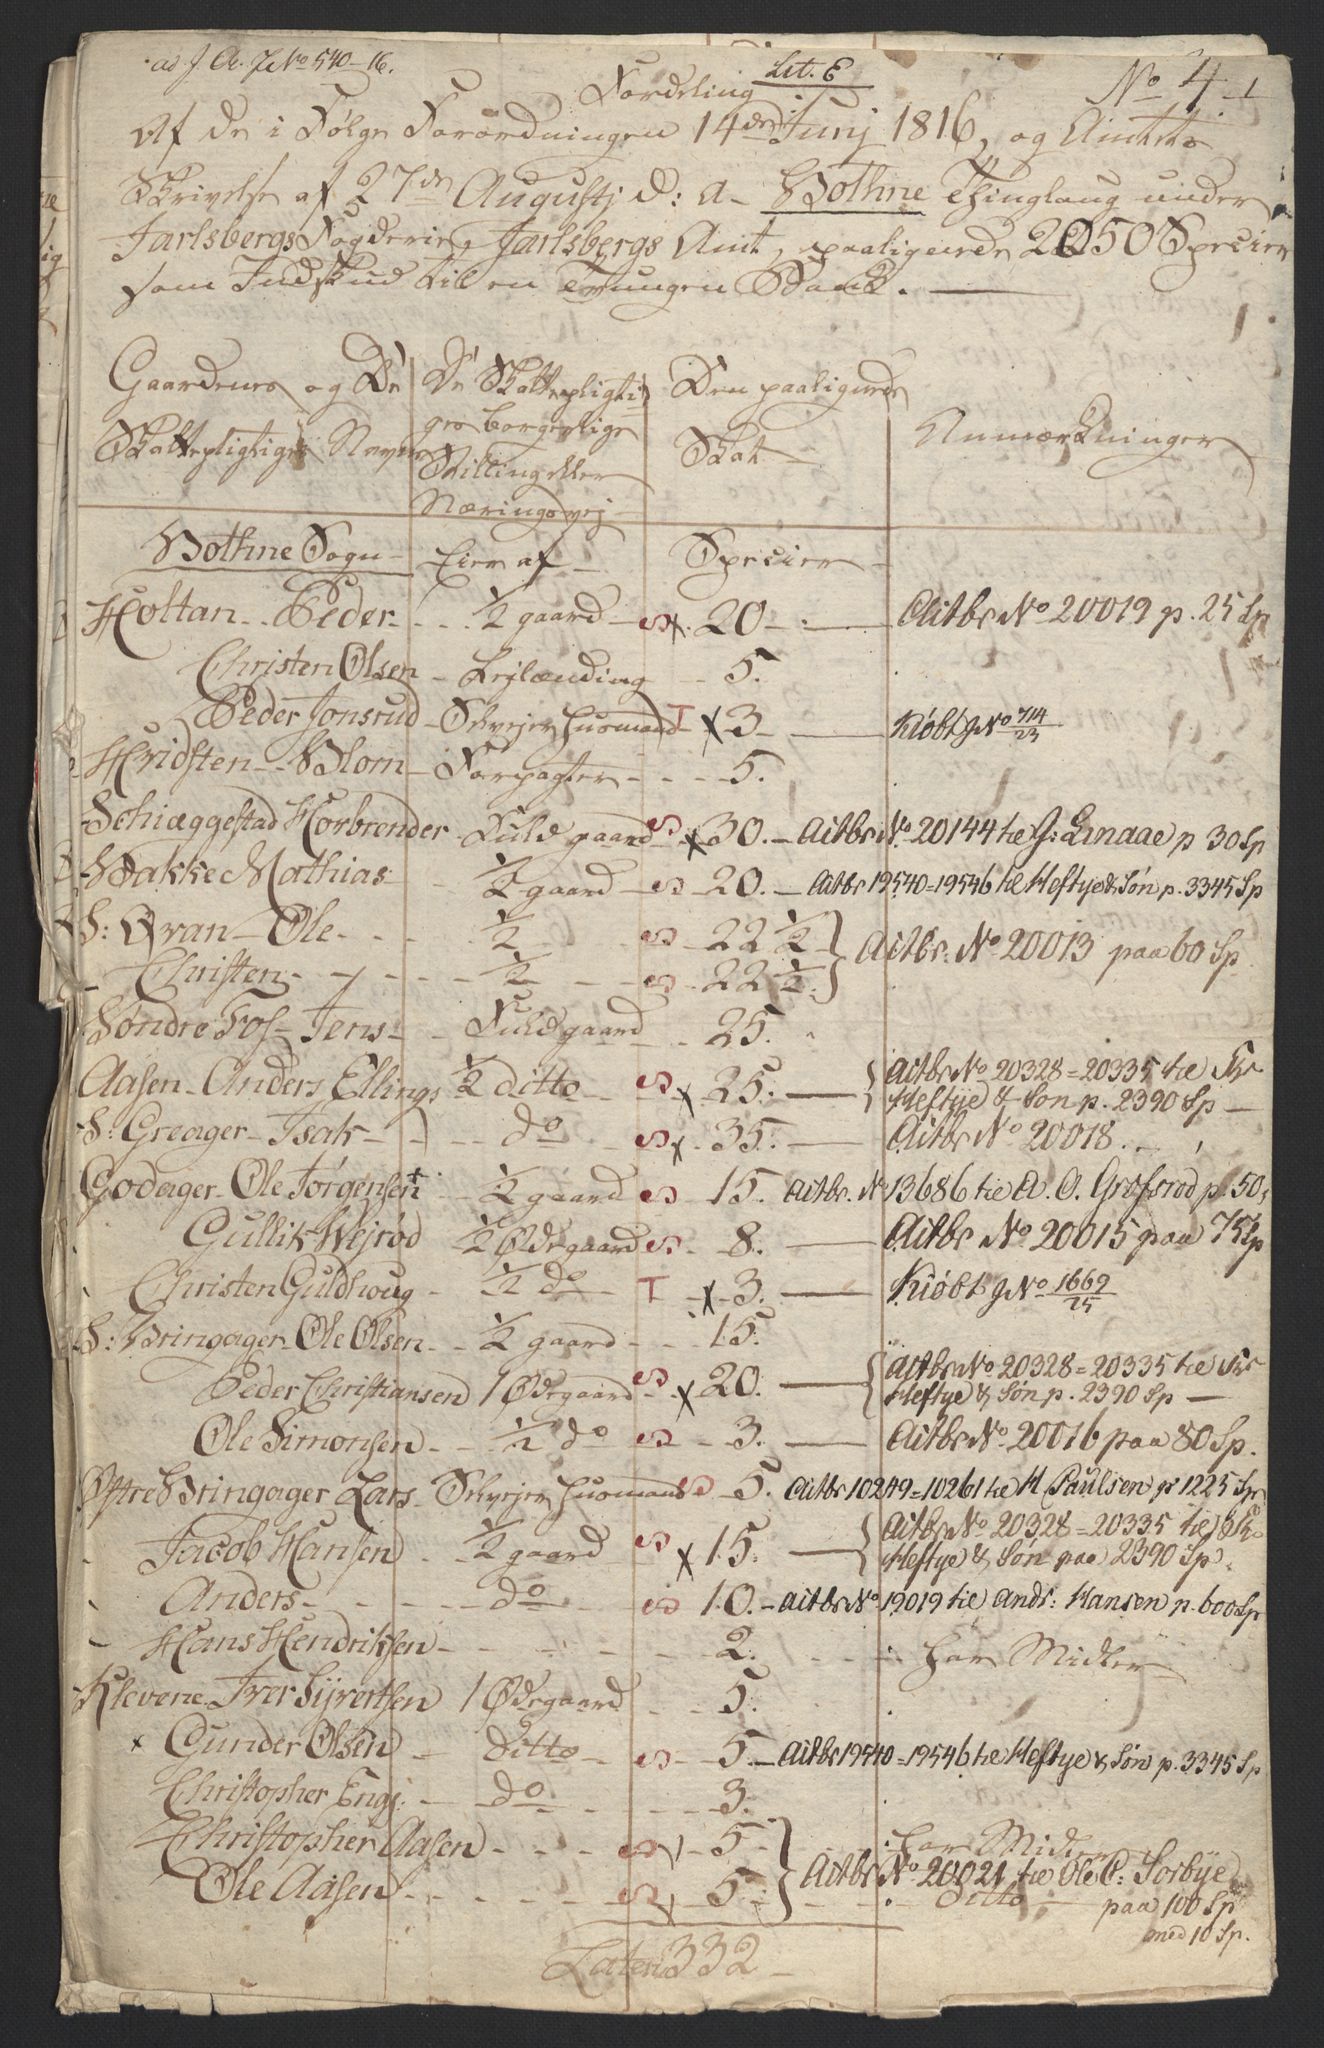 ad J. A. J No 540-16.
Lit. E
No 4 1
Fordeling
Af de i Følge Forordningen 14de Junj 1816, og Amtets
Skrivelse af 27de Augustj d: A- Bothne Thinglaug under
Jarlsbergs Fogderie, Jarlsbergs Amt, paalignede 2050 Specier
som Indskud til en Bank.
Gaardenes og De Skattepligtiges Navne
De Skattepligtiges borgerlige Stilling eller Næringsvej
Den paalignede Skat
Anmærkninger
Bothne Sogn - Eier af - Specier
Holtan - Peder - 1/2 gaard - s x 20 - Actbr No 20019 p. 25 Sp
Christen Olsen - Lejlænding - 5.
Peder Jonsrud - Selvejer Huusmand T x 3 - Kiøbt g No 714/23
Hridsten - Blom - Forpagter - 5.
Schiæggestad Horbrender - Fuld gaard s x 30. - Actbr No 20144 til G: Linaae p 30 Sp
Bakke Mathias - 1/2 gaard - s - 20. - Actbr 19540=19546 til Heftye & Søn p. 3345 Sp
S: Qvan - Ole - 1/2 - s - 22 1/2 } Actbr. No 20013 paa 60 Sp.
Christen - 1/2 - s - 22 1/2 }
Søndre Fos - Jens - Fuld gaard - 25.
Aasen - Anders Ellings 1/2 ditto - s x 25. - { Actbr No 20328=20335 til Thr Heftye & Søn p. 2390 Sp -
S: Greager - Isak - do - s x 35. - Actbr No 20018.
Godager - Ole Jørgensen + - 1/2 gaard s - 15. Actbr. No 13686 til A. O. Grefsrod p. 50
Gullik Wejrød 1/2 Ødegaard s. - 8. - Actbr No 20015 paa 75 Sp
Christen Guldhoug - 1/2 do - T - x 3. - Kiøbt g No 1669/25
S: Bringager - Ole Olsen - 1/2 gaard - 15.
Peder Christiansen 1 Ødegaard s - x 20. - { Actbr No 20328=20335 til Thr Heftye & Søn p. 2390 Sp -
Ole Simonsen - 1/2 do s - 3. - Actbr No 20016 paa 80 Sp.
Østre Bringager Lars - Selvejer Huusmand s - 5. Actbr 10249=10261 til H Paulsen p 1225 Sp
Jacob Hansen - 1/2 gaard - s x 15. - { Actbr No 20328=20335 til Thr Heftye & Søn paa 2390 Sp.
Anders - do - s 10. - Actbr No 19019 til Andr: Hansen p. 600 Sp
Hans Hendriksen - 2. - har Midler
Klevene Iver Syvertsen 1 Ødegaard - 5.
x Gunder Olsen - Ditto - s - 5. - Actbr 19540=19546 til Heftye & Søn p. 3345 Sp
Christopher Engj. - do - 3.
Christopher Aasen - s - 5 } har Midler
Ole Aasen - s - 5. } Actbr No 20021 til Ole C: Sorbye
ditto - paa 100 Sp
med 10 Sp.
Lateri 332 -